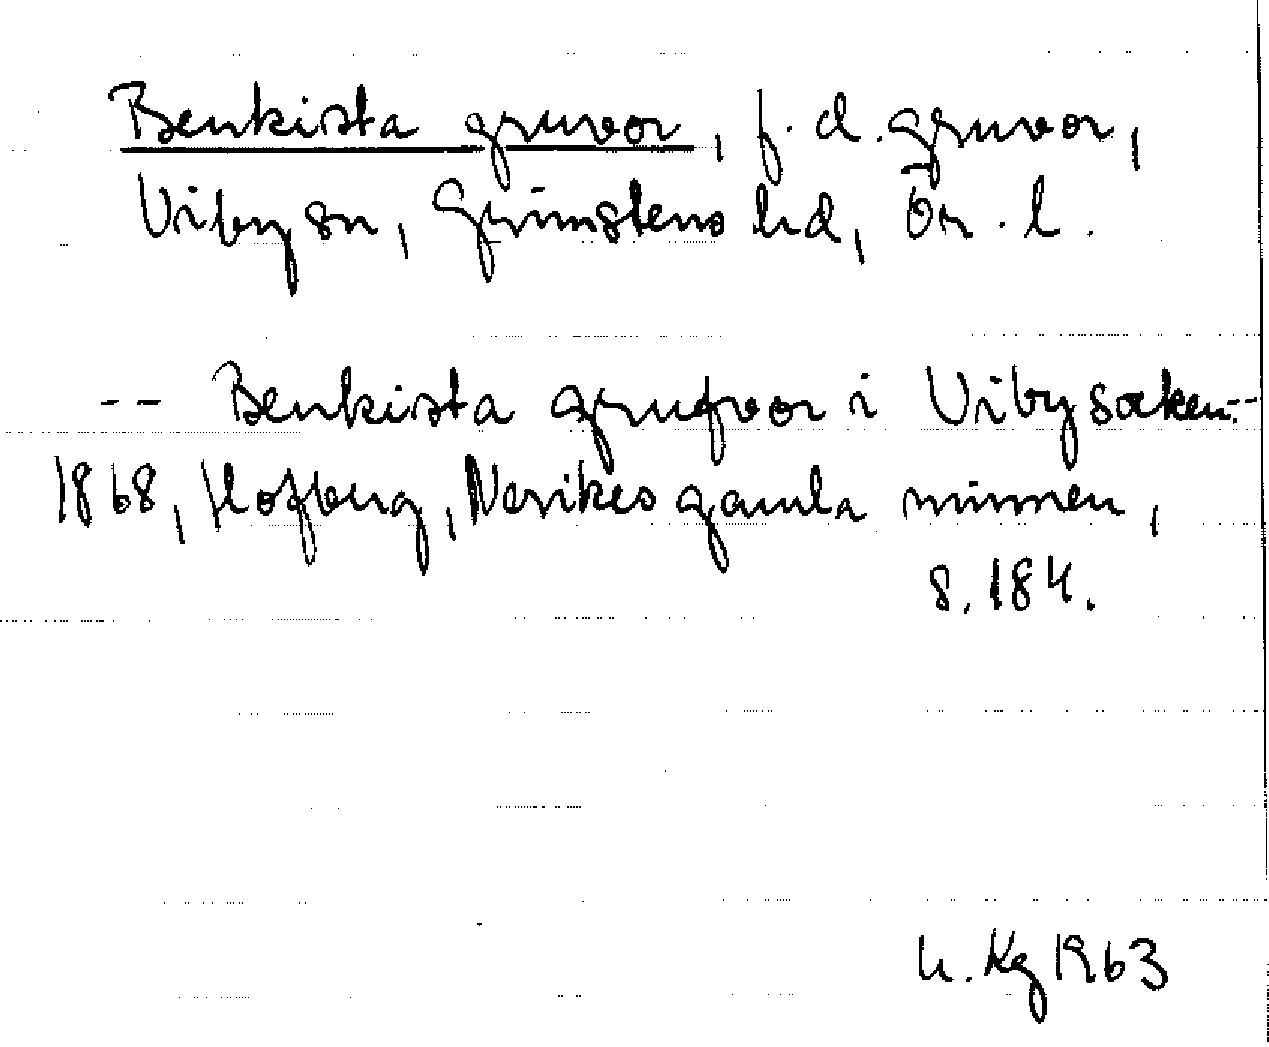 Benkista gruvor, f.d. gruvor,
Viby sn, Grimstens hd, Ör. l.
-- Benkista grufvor i Viby socken --
1868, Hofberg, Nerikes gamla minnen,
s. 184.
h. Kg 1963